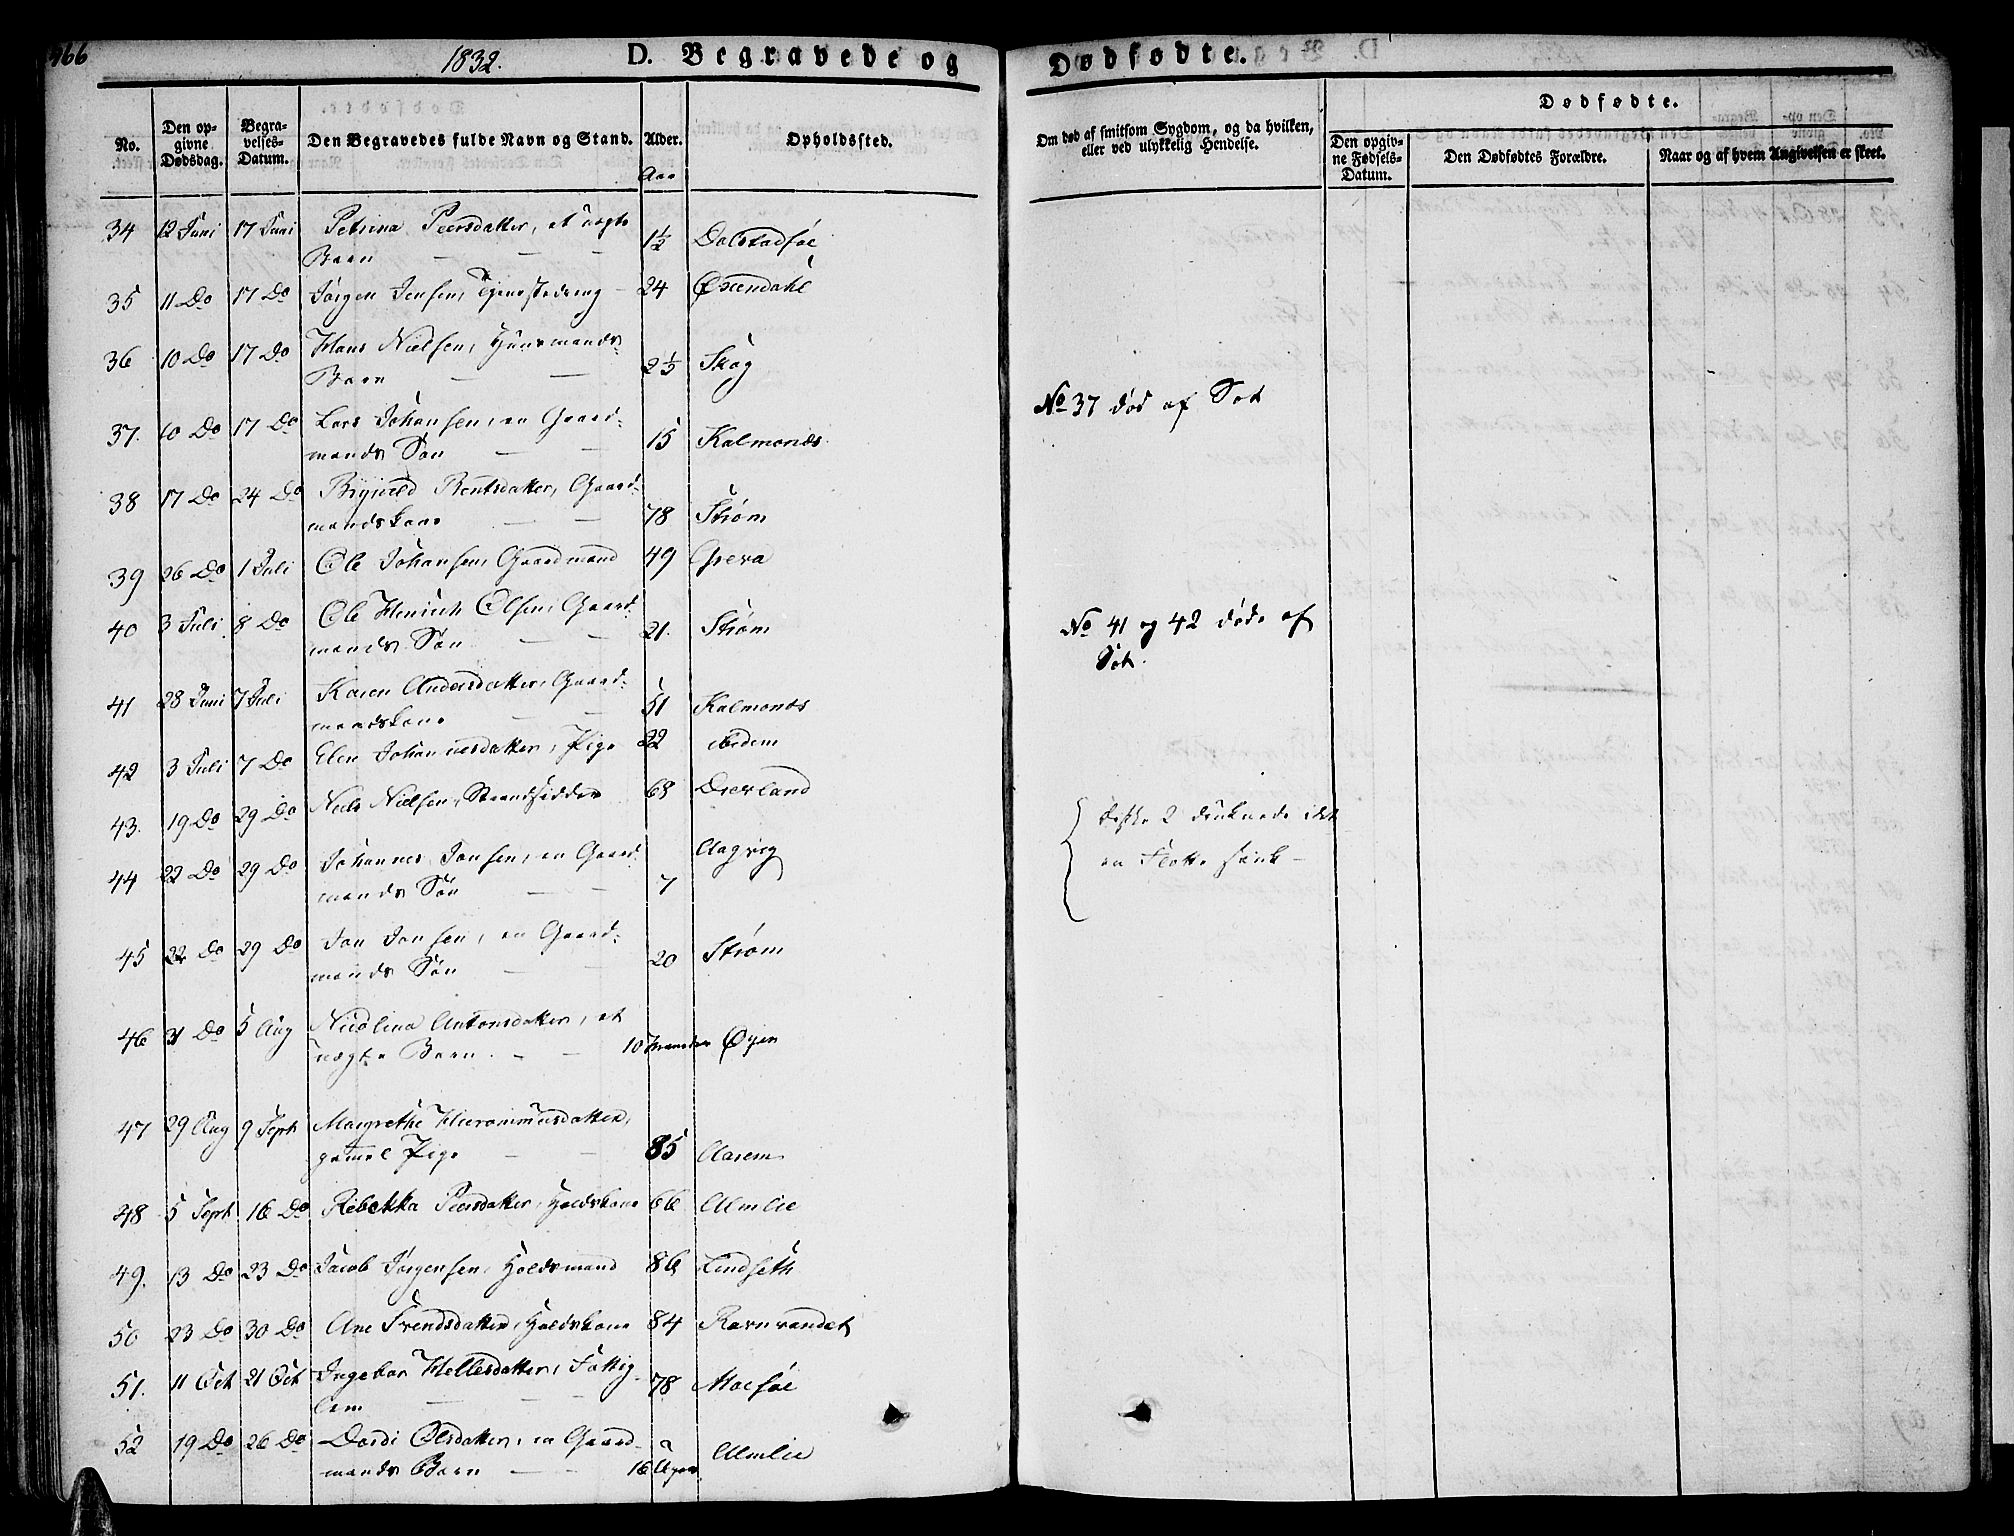 466
1832.
D. Begravede og
No.
Den opgivne Dødsdag.
Begravelses-Datum.
Den Begravedes fulde Navn og Stand.
Alder.
Aar
Opholdssted.
34 12 Juni 17 Juni Petrina Peersdatter, et uægte
Barn — — 1½ Dolstadføe
35 11 Do 17 Do Jørgen Jensen, Tjenestedreng 24 Øxendahl
36 10 Do 17 Do Hans Nielsen, Huusmands-
Barn — — 2½ Skog
37. 10 Do 17 Do Lars Johansen, en Gaard-
mands Søn — — 15 Kalmonds
38 17 Do 24 Do Bentsdatter, Gaard-
mandskone — — 78 Strøm
39 26 Do 1 Juli Ole Johansen, Gaardmand 49 Greva
40 3 Juli 8 Do Ole Henrich Olsen, Gaard-
mands Søn — — 21. Strøm
41 28 Juni 7 Juli Karen Andersdatter, Gaard-
mandskone — — 51 Kalmonds
42 3 Juli 7 Do Elen Johannesdatter, Pige 22 ibidem
43. 19 Do 29 Do Niels Nielsen, Strandsidder 68 Dverland
44 22 Do 29 Do Johannes Jonsen, en Gaard-
mands Søn — — 7 Aagvig
45 22 Do 29 Do Jon Jonsen, en Gaard-
mands Søn — — 20 Strøm
46 31 Do 5 Aug Nicolina Antonsdatter, et
uægte Barn. — — 10 Maaneder Øyen
47 29 Aug 9 Septr Margrethe Hieronimusdatter,
gamel Pige — — 85 Aarem
48 5 Septr 16 Do Rebekka Peersdatter, Holdskone 66 Almlie
49. 13 Do 23 Do Jacob Jørgensen, Holdsmand 86 Lindseth
50 23 Do 30 Do Ane Svendsdatter, Holdskone 84 Ravnvandet
51. 11 Oct 21 Oct Ingebor Hellesdatter, Fattig-
lem — — 78 Moesøe
52 19 Do 26 Do Dordi Olsdatter, en Gaard-
mands Barn — — 16 Uger Almlie
Dødfødte.
Om død af smitsom Sygdom, og da hvilken,
eller ved ulykkelig Hendelse.
Dødfødte.
Den opgivne Fødsels-Datum.
Den Dødfødtes Forældre.
Naar og af hvem Angivelsen er skeet.
No 37 død af Sot
No 41 og 42 døde af
Sot.
Disse 2 druknede idet
en Flotte sank —